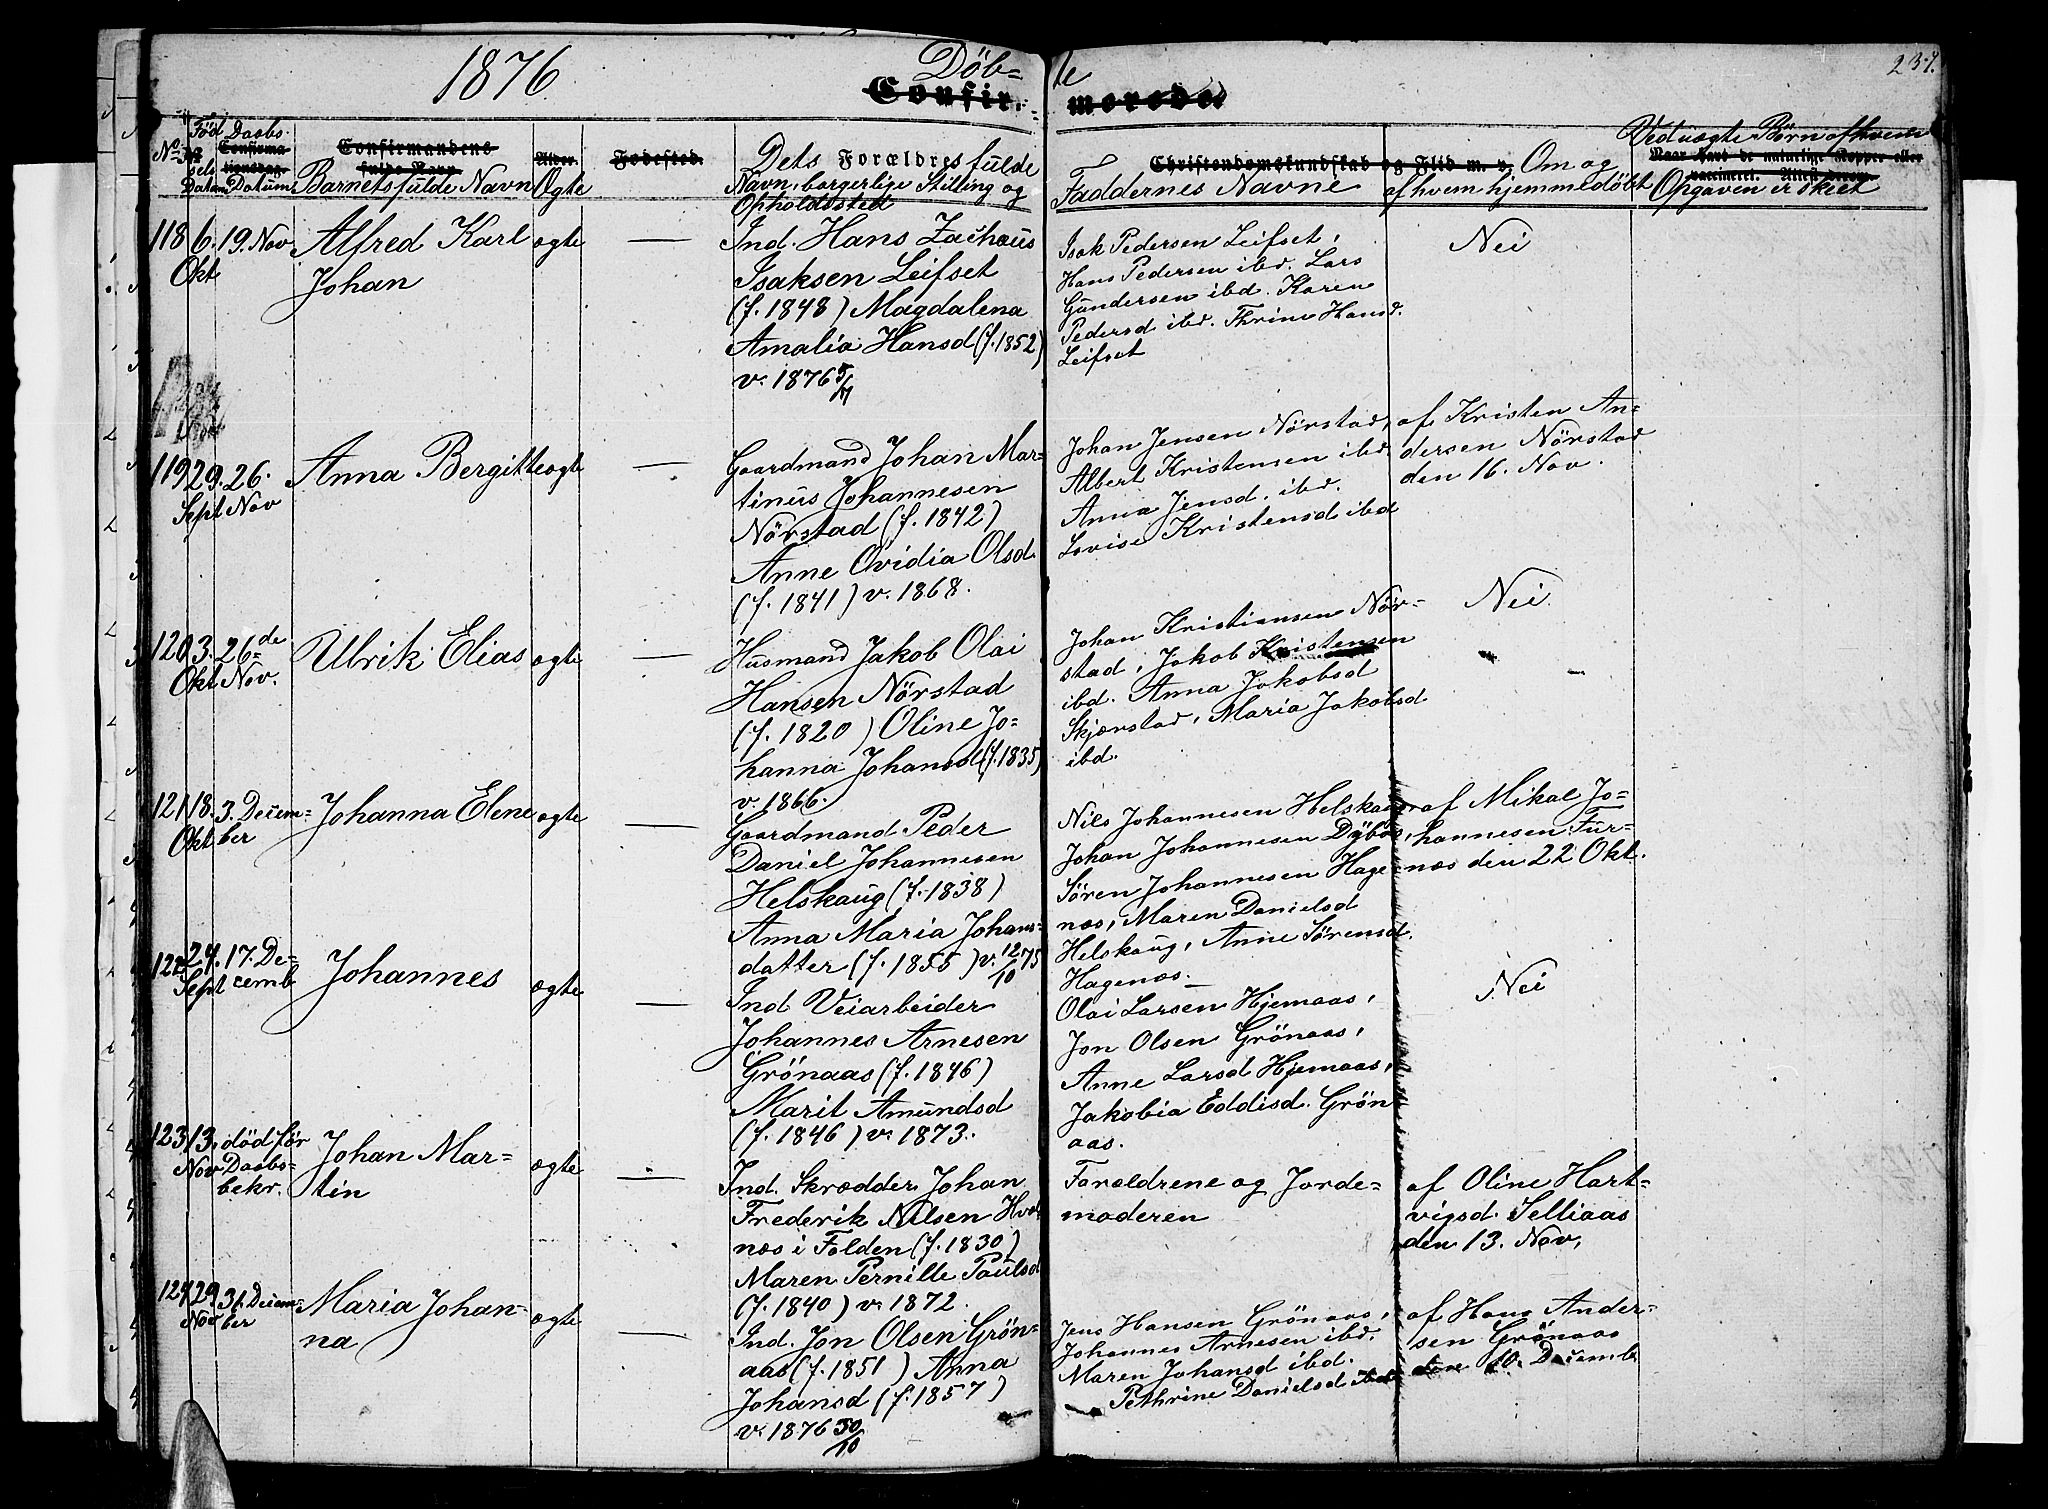 1876
Döb=
te
237.
Confir=
merede.
No
Födsels Datum
Daabs-Datum
Confirmationsdag.
Confirmandens fulde Navn
Barnets fulde Navn
Alder.
Ægte
Födested.
Dets Forældres fulde
Navn, borgerlige Stilling og
Opholdssted
Christendomskundskab og Flid m. v.
Faddernes Navne
Om og
af hvem hjemmedöbt
Ved uægte Börn af hvem
Naar Barnet havt de naturlige Kopper eller
vaccineret. Attest derom.
Opgaven er skeet
118 6. Okt 19. Nov Alfred Karl
Johan
ægte
Ind. Hans Zachæus
Isaksen Leifset
(f. 1848) Magdalena
Amalia Hansd (f. 1852)
v. 1876 5/7
Isak Pedersen Leifset,
Hans Pedersen ibd. Lars
Gundersen ibd. Karen
Pedersd ibd. Thrine Hansd.
Leifset
Nei
119 29. Sept 26. Nov Anna Bergitte
ægte
Gaardmand Johan Mar=
tinus Johannesen
Nörstad (f. 1842)
Anne Ovidia Olsd.
(f. 1841) v. 1868.
Johan Jensen Nörstad,
Albert Kristensen ibd
Anna Jensd. ibd.
Lovise Kristensd ibd
af Kristen An=
dersen Nörstad
den 16. Nov.
120 3. Okt 26de Nov. Ulrik Elias
ægte
Husmand Jakob Olai
Hansen Nörstad
(f. 1820) Oline Jo=
hanna Johansd (f. 1835)
v. 1866.
Johan Kristiansen Nör=
stad, Jakob Kristensen
ibd. Anna Jakobsd
Skjærstad, Maria Jakobsd
ibd.
Nei.
121 18. Okt 3. Decem=
ber
Johanna Elene
ægte
Gaardmand Peder
Daniel Johannesen
Helskaug (f. 1838)
Anna Maria Johans=
datter (f. 1855) v. 12/10 75
Nils Johannesen Helskaug,
Johan Johannesen Dybos,
Sören Johannesen Hage=
næs, Maren Danielsd
Helskaug, Anne Sörensd.
Hagenæs
af Mikal Jo=
hannesen Fur=
næs den 22 Okt.
122 24. Sept 17. De=
cemb
Johannes
ægte
Ind Veiarbeider
Johannes Arnesen
Grönaas (f. 1846)
Marit Amundsd
(f. 1846) v. 1873.
Olai Larsen Hjemaas,
Jon Olsen Grönaas,
Anne Larsd Hjemaas,
Jakobia Eddisd. Grön
aas.
Nei
123 13. Nov död för
Daabs-
bekr.
Johan Mar=
tin
ægte
Ind. Skrædder Johan
Frederik Nilsen Hval
næs i Folden (f. 1830)
Maren Pernille Paulsd
(f. 1840) v. 1872.
Forældrene og Jorde=
moderen
af Oline Hart=
vigsd. Selliaas
den 13. Nov,
124 29 Nov 31. Decem=
ber
Maria Johan=
na
ægte
Ind. Jon Olsen Grön=
aas (f. 1851) Anna
Johansd (f. 1857)
v. 1876 30/10
Jens Hansen Grönaas,
Johannes Arnesen ibd.
Maren Johansd ibd.
Pethrine Danielsd ibd
af Hans Ander=
sen Grönaas
den 10. Decemb